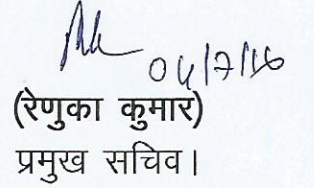 04/7/16
(रेणुका कुमार)
प्रमुख सचिव।